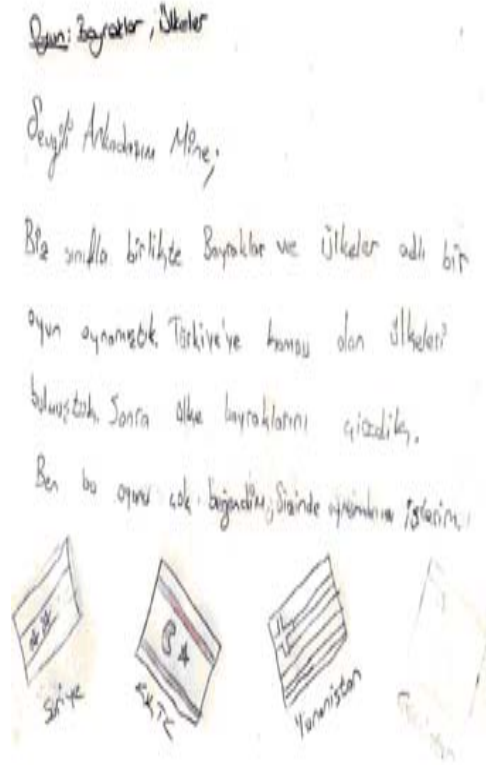 Oyun: Bayraklar, Ülkeler
Sevgili Arkadaşım Mine;
Biz sınıfla birlikte Bayraklar ve ülkeler adlı bir
oyun oynamıştık. Türkiye'ye komşu olan ülkeleri
bulmuştuk. Sonra ülke bayraklarını çizdik.
Ben bu oyunu çok beğendim, Sizinde oynamanızı isterim.
Suriye
KKTC
Yunanistan